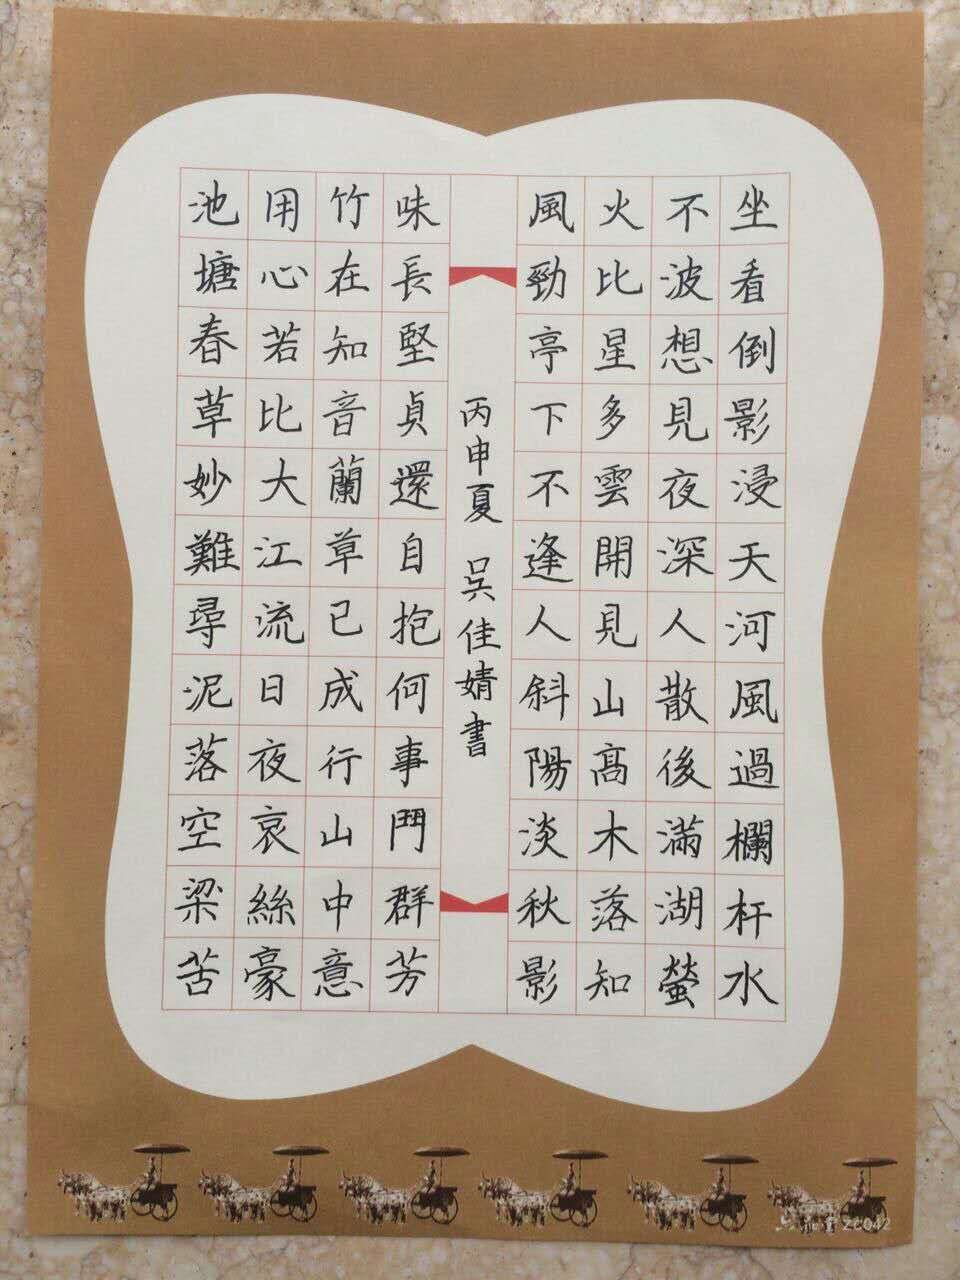 坐看倒影浸天河風過欄杆水
不波想見夜深人散後滿湖螢
火比星多雲開見山高木落知
風勁亭下不逢人斜陽淡秋影
丙申夏 吳佳婧書
味長堅貞還自抱何事鬥群芳
竹在知音蘭草已成行山中意
用心若比大江流日夜哀絲豪
池塘春草妙難尋泥落空梁苦
ZC042